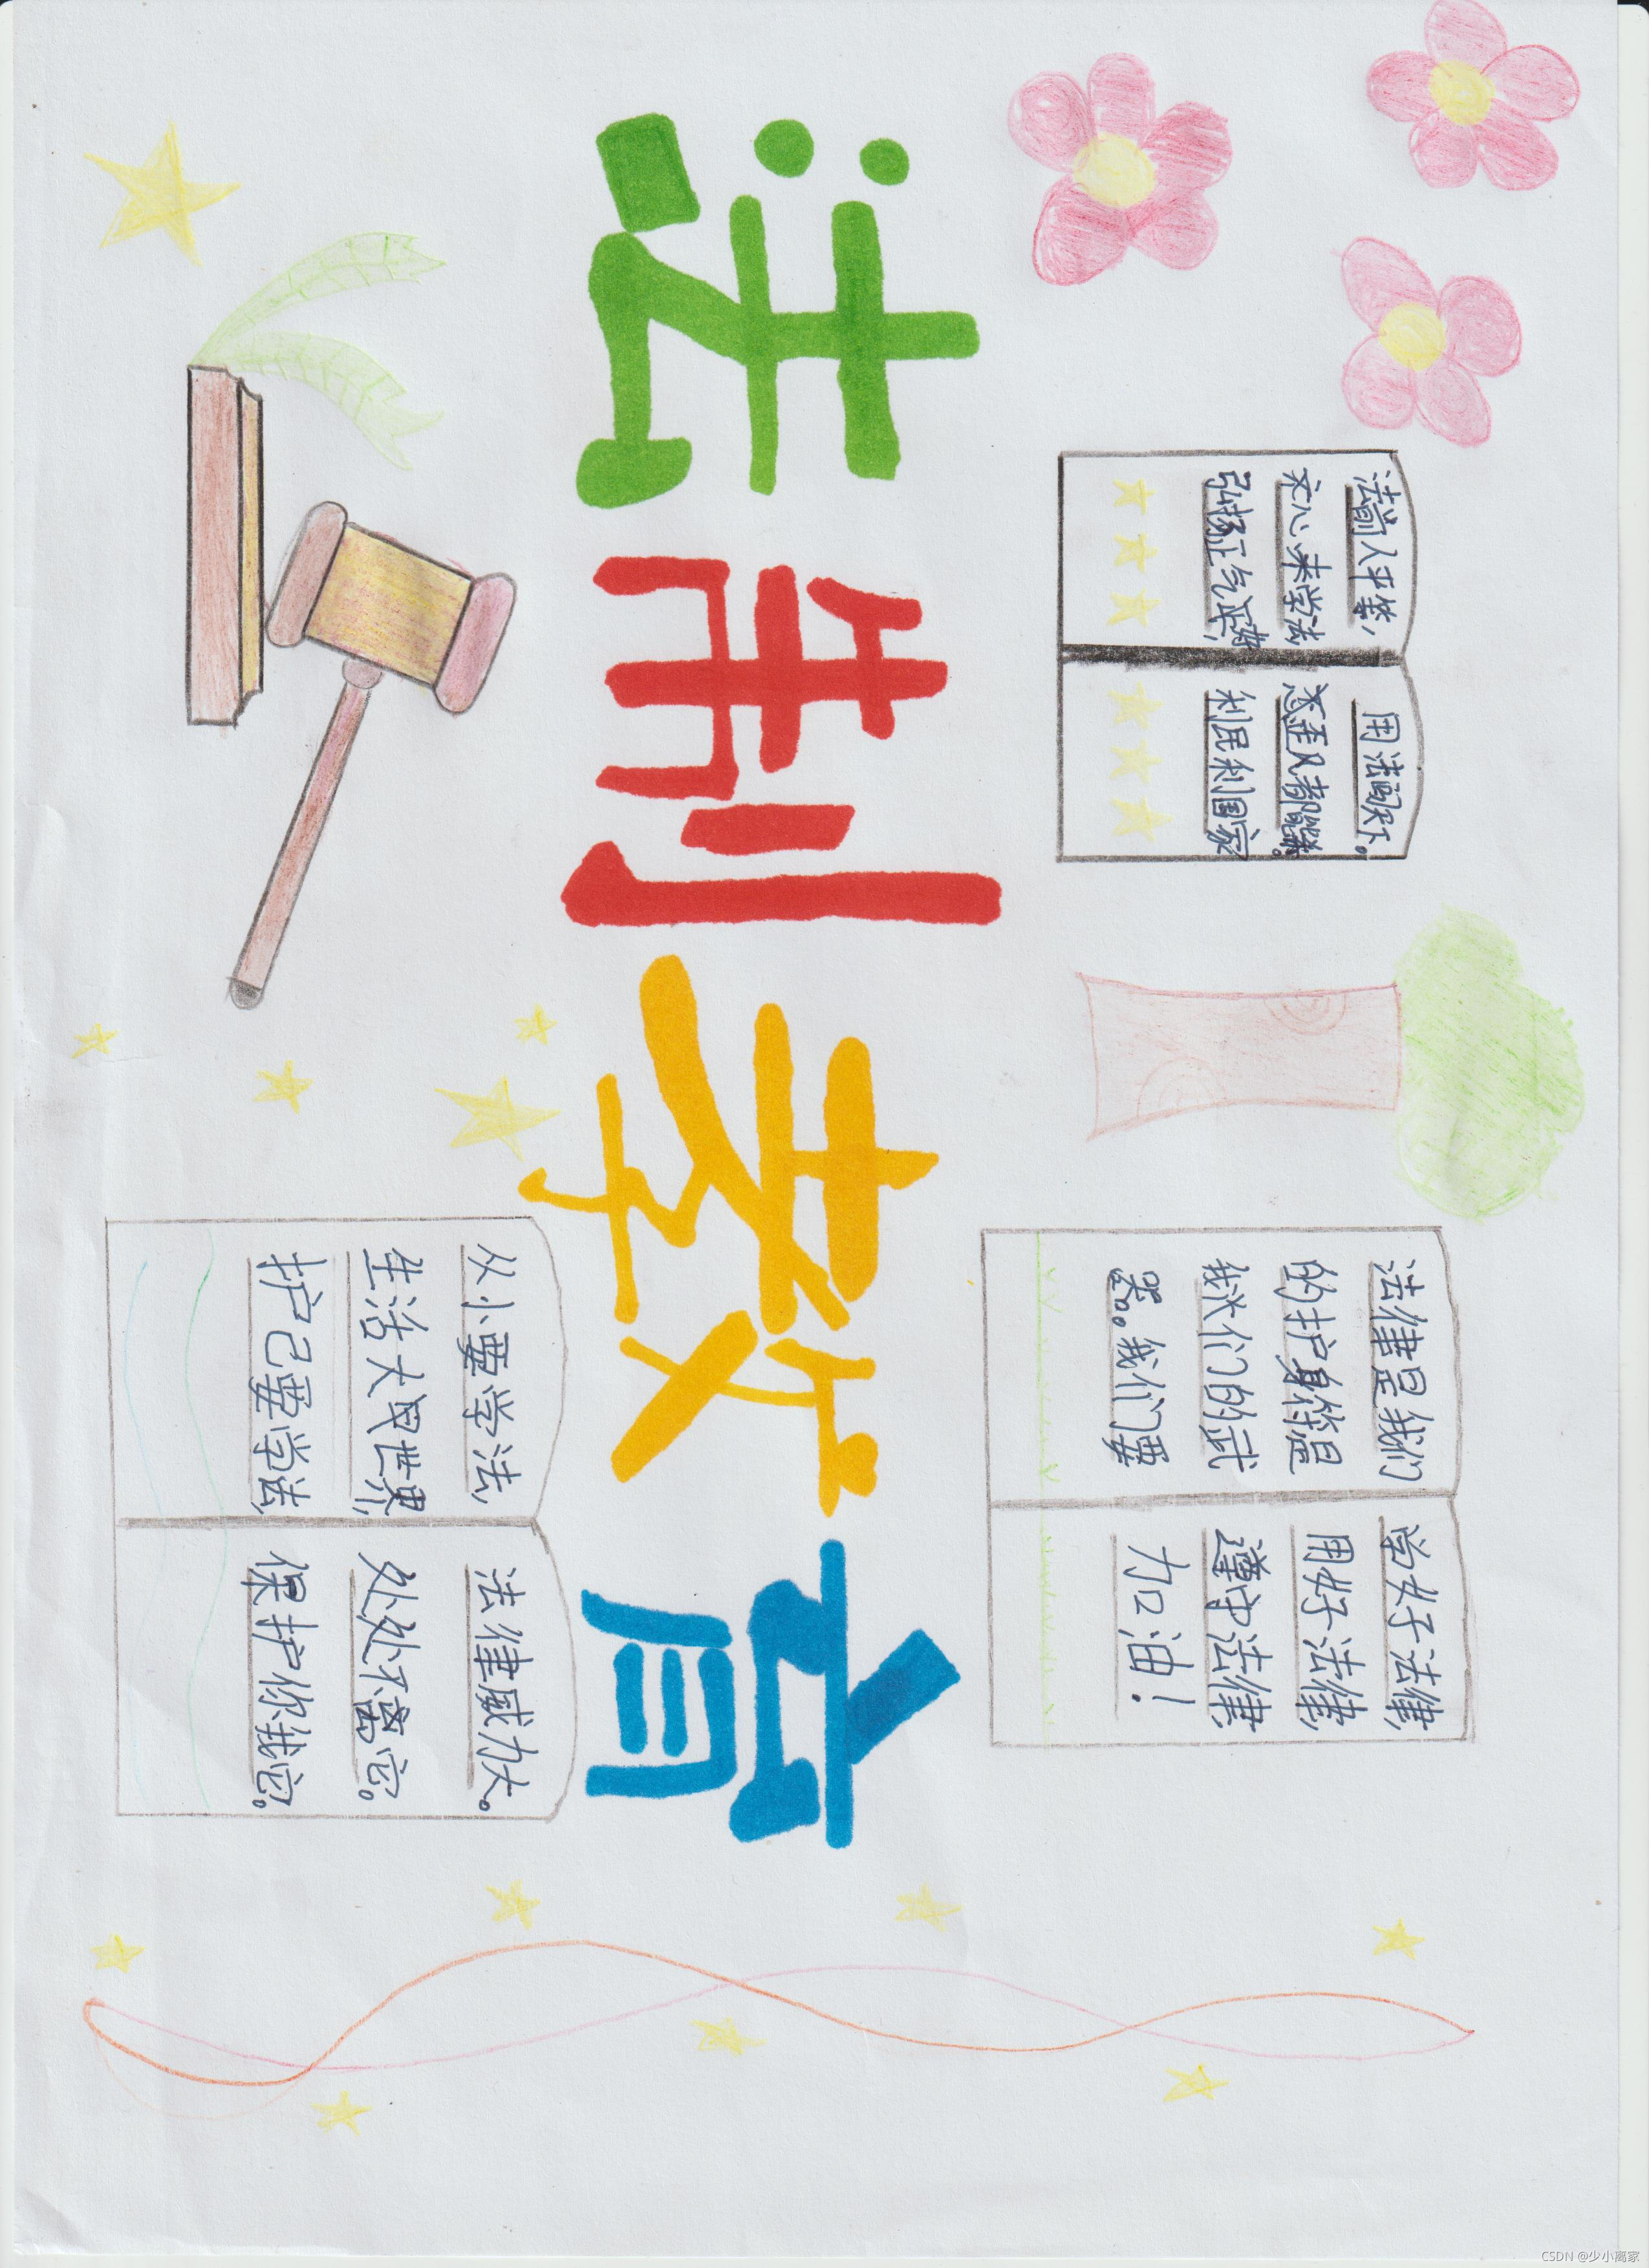 法制教育
法前人平等,
心来学法
弘扬正气
用法闯天下。
歪风都能
利民利国家
法律是我们
的护身符是
我们的武
器。我们要
学好法律
用好法律
遵守法律
加油!
从小要学法,
生活大世界
护己要学法
法律威力大。
处处不离它。
保护你我它。
CSDN @少小离家